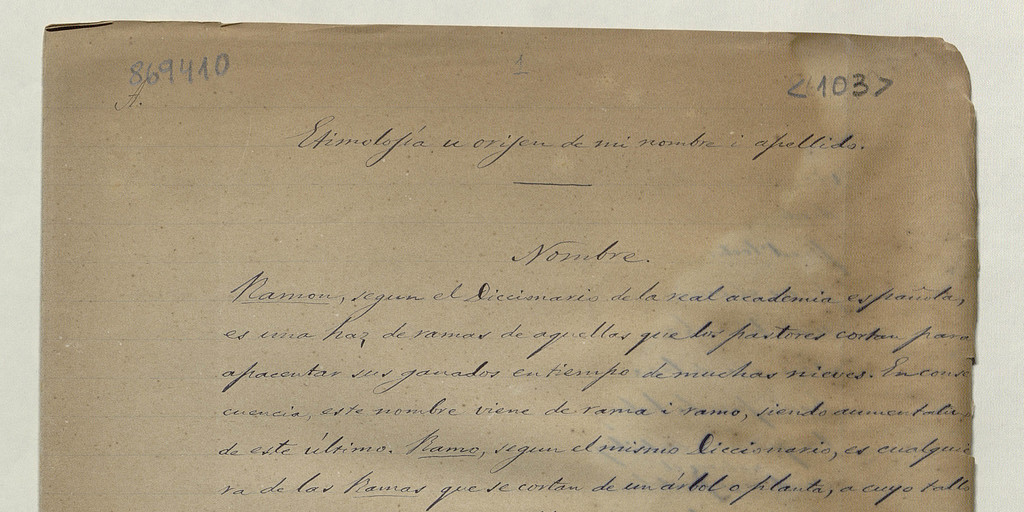 869410
1
<103>
A.
Etimolojía u orijen de mi nombre i apellido.
Nombre.
Ramon, segun el Diccionario de la real academia española,
es una haz de ramas de aquellas que los pastores cortan para
apacentar sus ganados en tiempo de muchas nieves. En conse
cuencia, este nombre viene de rama i ramo, siendo aumentativo
de este último. Ramo, segun el mismo Diccionario, es cualquie
ra de las Ramas que se cortan de un árbol o planta, a cuyo tallo